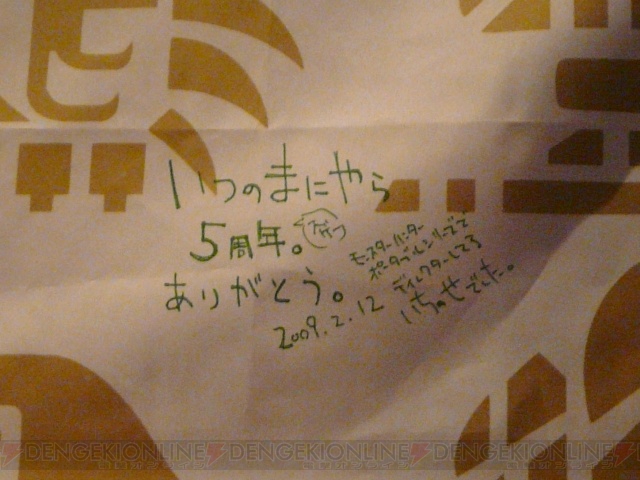 いつのまにやら
5周年。
ありがとう。
2009.2.12
モンスターハンター
ポータブルシリーズで
ディレクターしてる
いちのせでした。
DENGEKIONLINE DENGEKIONLINE DENGEKIONLINE